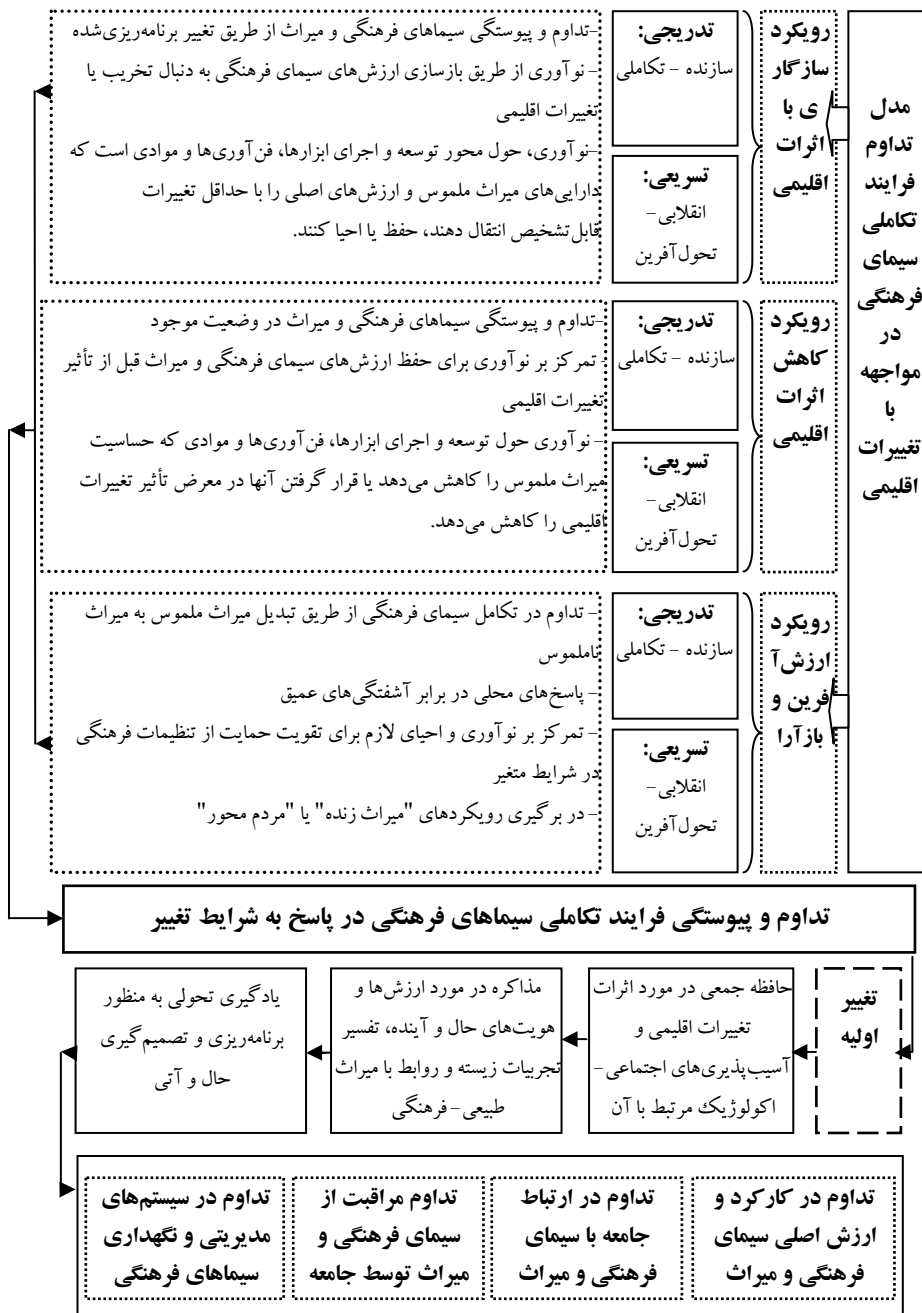 مدل
تداوم
فرایند
تکاملی
سیمای
فرهنگی
در
مواجهه
با
تغییرات
اقلیمی
رویکرد
سازگار
ی با
اثرات
اقلیمی
تدریجی:
سازنده - تکاملی
تسریعی:
انقلابی-
تحول‌آفرین
-تداوم و پیوستگی سیماهای فرهنگی و میراث از طریق تغییر برنامه‌ریزی‌شده
- نوآوری از طریق بازسازی ارزش‌های سیمای فرهنگی به دنبال تخریب یا
تغییرات اقلیمی
-نوآوری، حول محور توسعه و اجرای ابزارها، فن‌آوری‌ها و موادی است که
دارایی‌های میراث ملموس و ارزش‌های اصلی را با حداقل تغییرات
قابل‌تشخیص انتقال دهند، حفظ یا احیا کنند.
رویکرد
کاهش
اثرات
اقلیمی
تدریجی:
سازنده - تکاملی
تسریعی:
انقلابی-
تحول‌آفرین
-تداوم و پیوستگی سیماهای فرهنگی و میراث در وضعیت موجود
- تمرکز بر نوآوری برای حفظ ارزش‌های سیمای فرهنگی و میراث قبل از تأثیر
تغییرات اقلیمی
- نوآوری حول توسعه و اجرای ابزارها، فن‌آوری‌ها و موادی که حساسیت
میراث ملموس را کاهش می‌دهد یا قرار گرفتن آنها در معرض تأثیر تغییرات
اقلیمی را کاهش می‌دهد.
رویکرد
ارزش‌آ
فرین و
بازآرا
تدریجی:
سازنده - تکاملی
تسریعی:
انقلابی-
تحول‌آفرین
- تداوم در تکامل سیمای فرهنگی از طریق تبدیل میراث ملموس به میراث
ناملموس
- پاسخ‌های محلی در برابر آشفتگی‌های عمیق
- تمرکز بر نوآوری و احیای لازم برای تقویت حمایت از تنظیمات فرهنگی
در شرایط متغیر
- در برگیری رویکردهای "میراث زنده" یا "مردم محور"
تداوم و پیوستگی فرایند تکاملی سیماهای فرهنگی در پاسخ به شرایط تغییر
تغییر
اولیه
حافظه جمعی در مورد اثرات
تغییرات اقلیمی و
آسیب‌پذیری‌های اجتماعی-
اکولوژیک مرتبط با آن
مذاکره در مورد ارزش‌ها و
هویت‌های حال و آینده، تفسیر
تجربیات زیسته و روابط با میراث
طبیعی-فرهنگی
یادگیری تحولی به منظور
برنامه‌ریزی و تصمیم‌گیری
حال و آتی
تداوم در کارکرد و
ارزش اصلی سیمای
فرهنگی و میراث
تداوم در ارتباط
جامعه با سیمای
فرهنگی و میراث
تداوم مراقبت از
سیمای فرهنگی و
میراث توسط جامعه
تداوم در سیستم‌های
مدیریتی و نگهداری
سیماهای فرهنگی